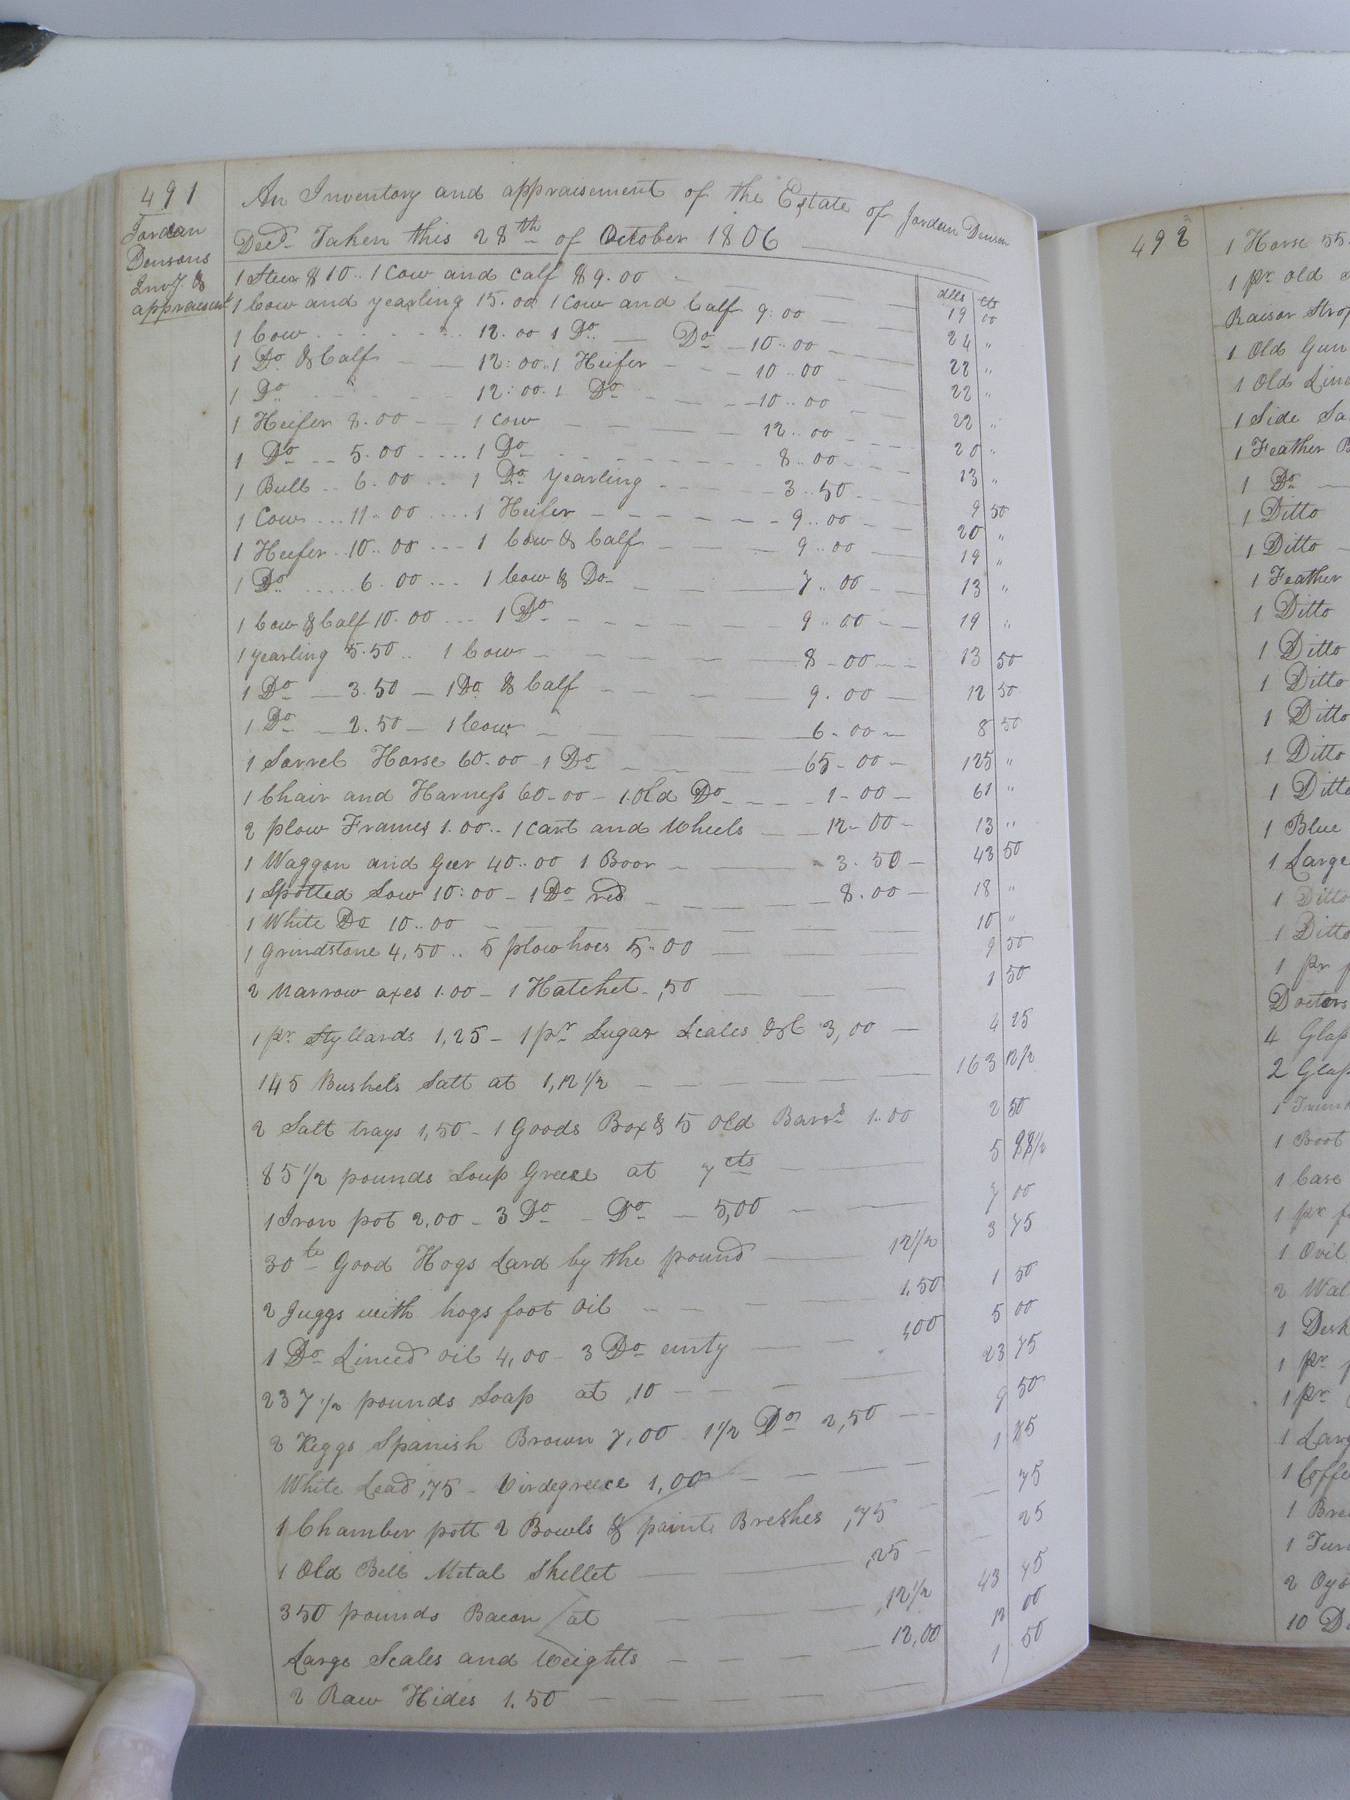 491
Jordan
Densons
Invy &
appraisment
An Inventory and appraisement of the Estate of Jordan Denson
Decd Taken this 28th of October 1806
dlls cts
1 Steer $10.. 1 Cow and Calf $9.00 19 00
1 Cow and yearling 15.00 1 Cow and Calf 9.00 24 "
1 Cow 12.00 1 Do Do 10..00 22 "
1 Do & Calf 12:00..1 Heifer 10..00 22 "
1 Do 12:00.1 Do 10..00 22 "
1 Heifer 8.00 1 Cow 12..00 20 "
1 Do 5.00 1 Do 8..00 13 "
1 Bull 6.00 1 Do yearling 3..50 9 50
1 Cow 11..00 1 Heifer 9..00 20 "
1 Heifer 10..00 1 Cow & Calf 9..00 19 "
1 Do 6.00 1 Cow & Do 7..00 13 "
1 Cow & Calf 10.00 1 Do 9..00 19 "
1 yearling 5.50 1 Cow 8-00 13 50
1 Do 3.50 1 Do & Calf 9.00 12 50
1 Do 2.50 1 Cow 6-00 8 50
1 Sorrel Horse 60-00 1 Do 65-00 125 "
1 Chair and Harness 60-00 - 1 Old Do 1-00 61 "
2 plow Frames 1.00.. 1 Cart and Wheels 12-00 13 "
1 Waggon and Geer 40..00 1 Boor 3.50 43 50
1 Spotted Sow 10:00 - 1 Do red 8.00 18 "
1 White Do 10..00 10 "
1 Grindstone 4,50 .. 5 plow hoes 5..00 9 50
2 Narrow axes 1.00 - 1 Hatchet ,50 1 50
1 pr Styllards 1,25 - 1 pr Sugar Scales &C 3,00 4 25
145 Bushels Salt at 1,12 1/2 163 12 1/2
2 Salt trays 1,50 - 1 Goods Box & 5 Old Barrs 1..00 2 50
85 1/2 pounds Soup Grece at 7 cts 5 98 1/2
1 Iron pot 2.00 - 3 Do - Do - 5,00 7 00
30 lb Good Hogs Lard by the pound 12 1/2 3 75
2 Juggs with hogs foot oil 1.50 1 50
1 Do Linced oil 4,00 - 3 Do emty 1,00 5 00
237 1/2 pounds Soap at ,10 23 75
2 Keggs Spanish Brown 7,00 1 1/2 Do 2,50 9 50
White Lead ,75 - Virdegreece 1,00 1 75
1 Chamber pott 2 Bowls & paint Breshes ,75 75
1 Old Bell Metal Skellet ,25 25
350 pounds Bacon at ,12 1/2 43 75
Large Scales and Weights 12,00 12 00
2 Raw Hides 1.50 1 50
492
1 Horse 55.
1 pr old
Raisor Strop
1 Old Gun
1 Old
1 Side
1 Feather
1 Do
1 Ditto
1 Ditto
1 Feather
1 Ditto
1 Ditto
1 Ditto
1 Ditto
1 Ditto
1 Ditto
1 Blue
1 Large
1 Ditto
1 Ditto
1 pr
Doctors
4 Glass
2 Glass
1
1 Boot
1 Case
1 pr
1 Ovil
2
1 Desk
1 pr
1 pr
1
1
1
1
2
10